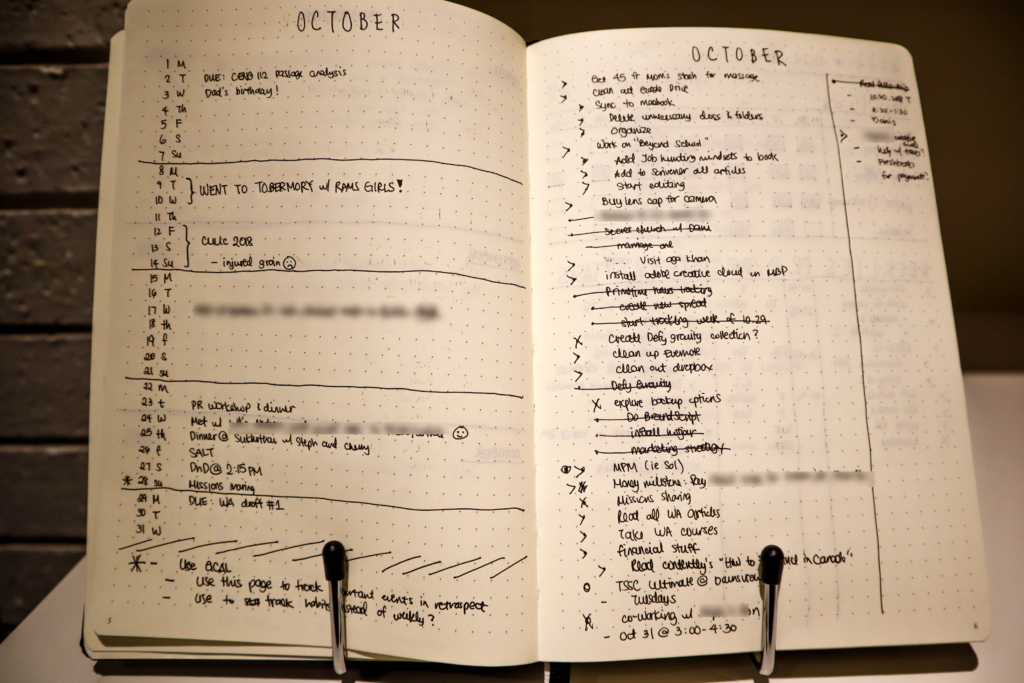 OCTOBER
1 M
2 T DUE: CENG 112 Passage analysis
3 W Dad's birthday!
4 Th
5 F
6 S
7 Su
8 M
9 T WENT TO TOBERMORY w/ RAMS GIRLS!
10 W
11 Th
12 F
13 S CUUC 2018
14 Su - injured groin
15 M
16 T
17 W
18 th
19 f
20 S
21 su
22 M
23 t PR workshop & dinner
24 W Met w/
25 th Dinner @ Sukhothai w/ Steph and
26 f SALT
27 S DnD @ 2:15 PM
* 28 su Missions sharing
29 M DUE: WA draft #1
30 T
31 W
* - Use GCAL
- Use this page to track events in retrospect
- Use to track habits of weekly?
5
OCTOBER
> Get 45 fr Mom's stash for massage
> Clean out Google Drive
> Sync to macbook
> Delete unnecessary docs & folders
> Organize
> Work on "Beyond School"
> Add Job hunting mindsets to book
> Add to Scrivener all articles
> Start editing
> Buy lens cap for camera
Secret church w/ Dani
marriage one
> Visit aga khan
> install adobe creative cloud on MBP
Primetime hours tracking
create new spread
start tracking week of 10.29
X Create Defy gravity collection?
> clean up Evernote
> clean out dropbox
Defy Gravity
X explore backup options
Do
install
marketing strategy
> MPM (ie Sol)
Money milestone: Pay
X Missions sharing
> Read all WA articles
> Take WA courses
> financial stuff
> Read contently's "How to in Canada"
o TSSC Ultimate @
- Tuesdays
X co-working w/
- Oct 31 @ 3:00-4:30
- 4:30-5:30
- Help w/
-
for payment?
6